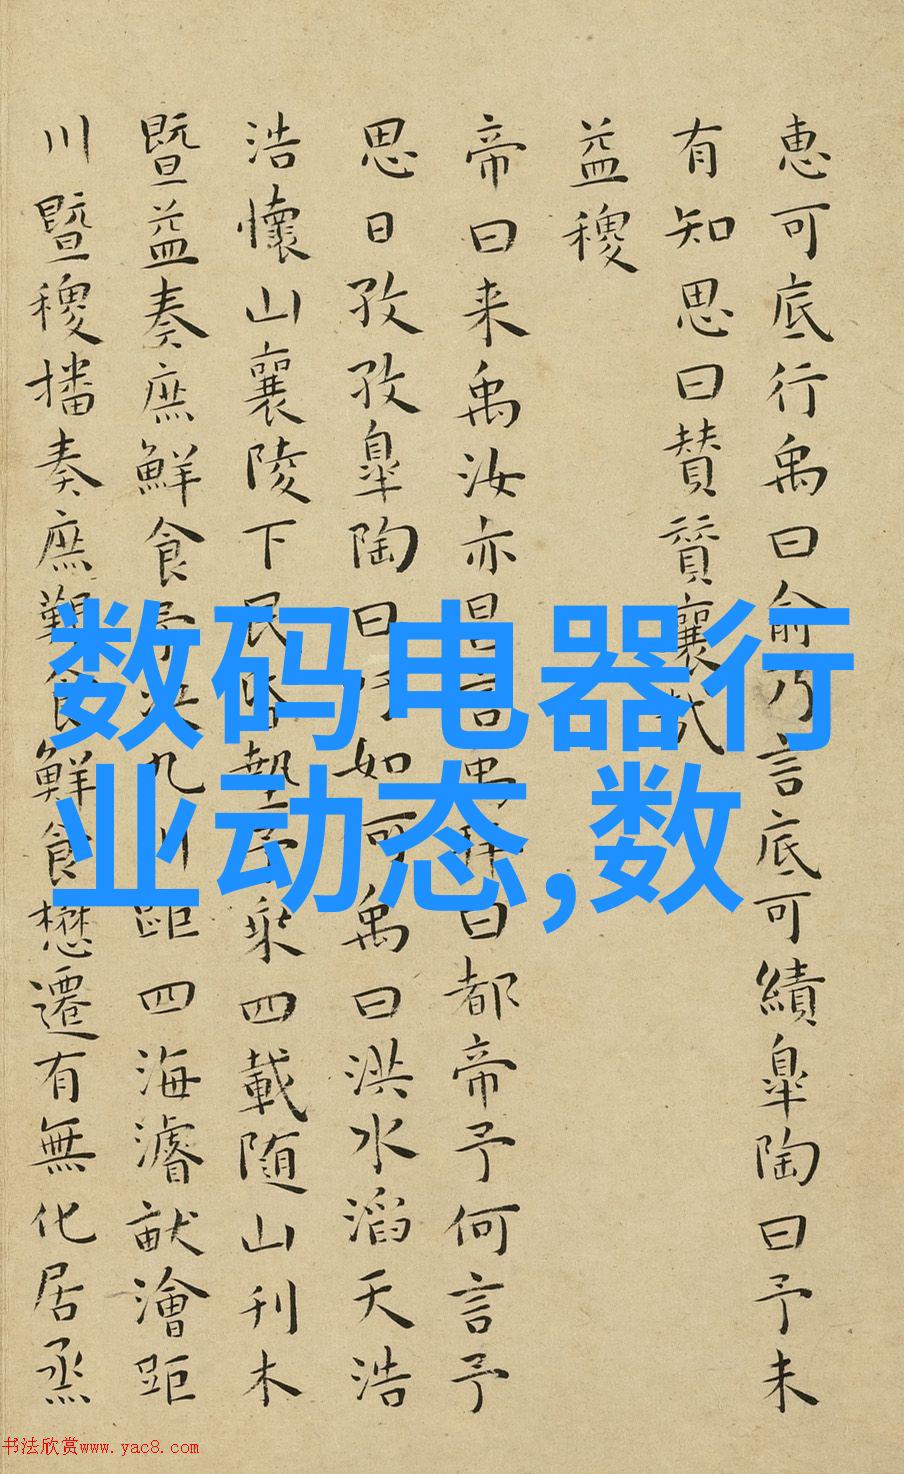 惠可底行禹曰俞乃言底可績臯陶曰予未
有知思曰賛賛襄哉
益稷
帝曰来禹汝亦昌言禹拜曰都帝予何言予
思日孜孜臯陶曰吁如何禹曰洪水滔天浩
浩懷山襄陵下民昏墊予乗四載随山刊木
暨益奏庶鮮食予决九川距四海濬畎澮距
川暨稷播奏庶艱食鮮食懋遷有無化居烝
数码电器行
业动态,数
书法欣赏www.yac8.com